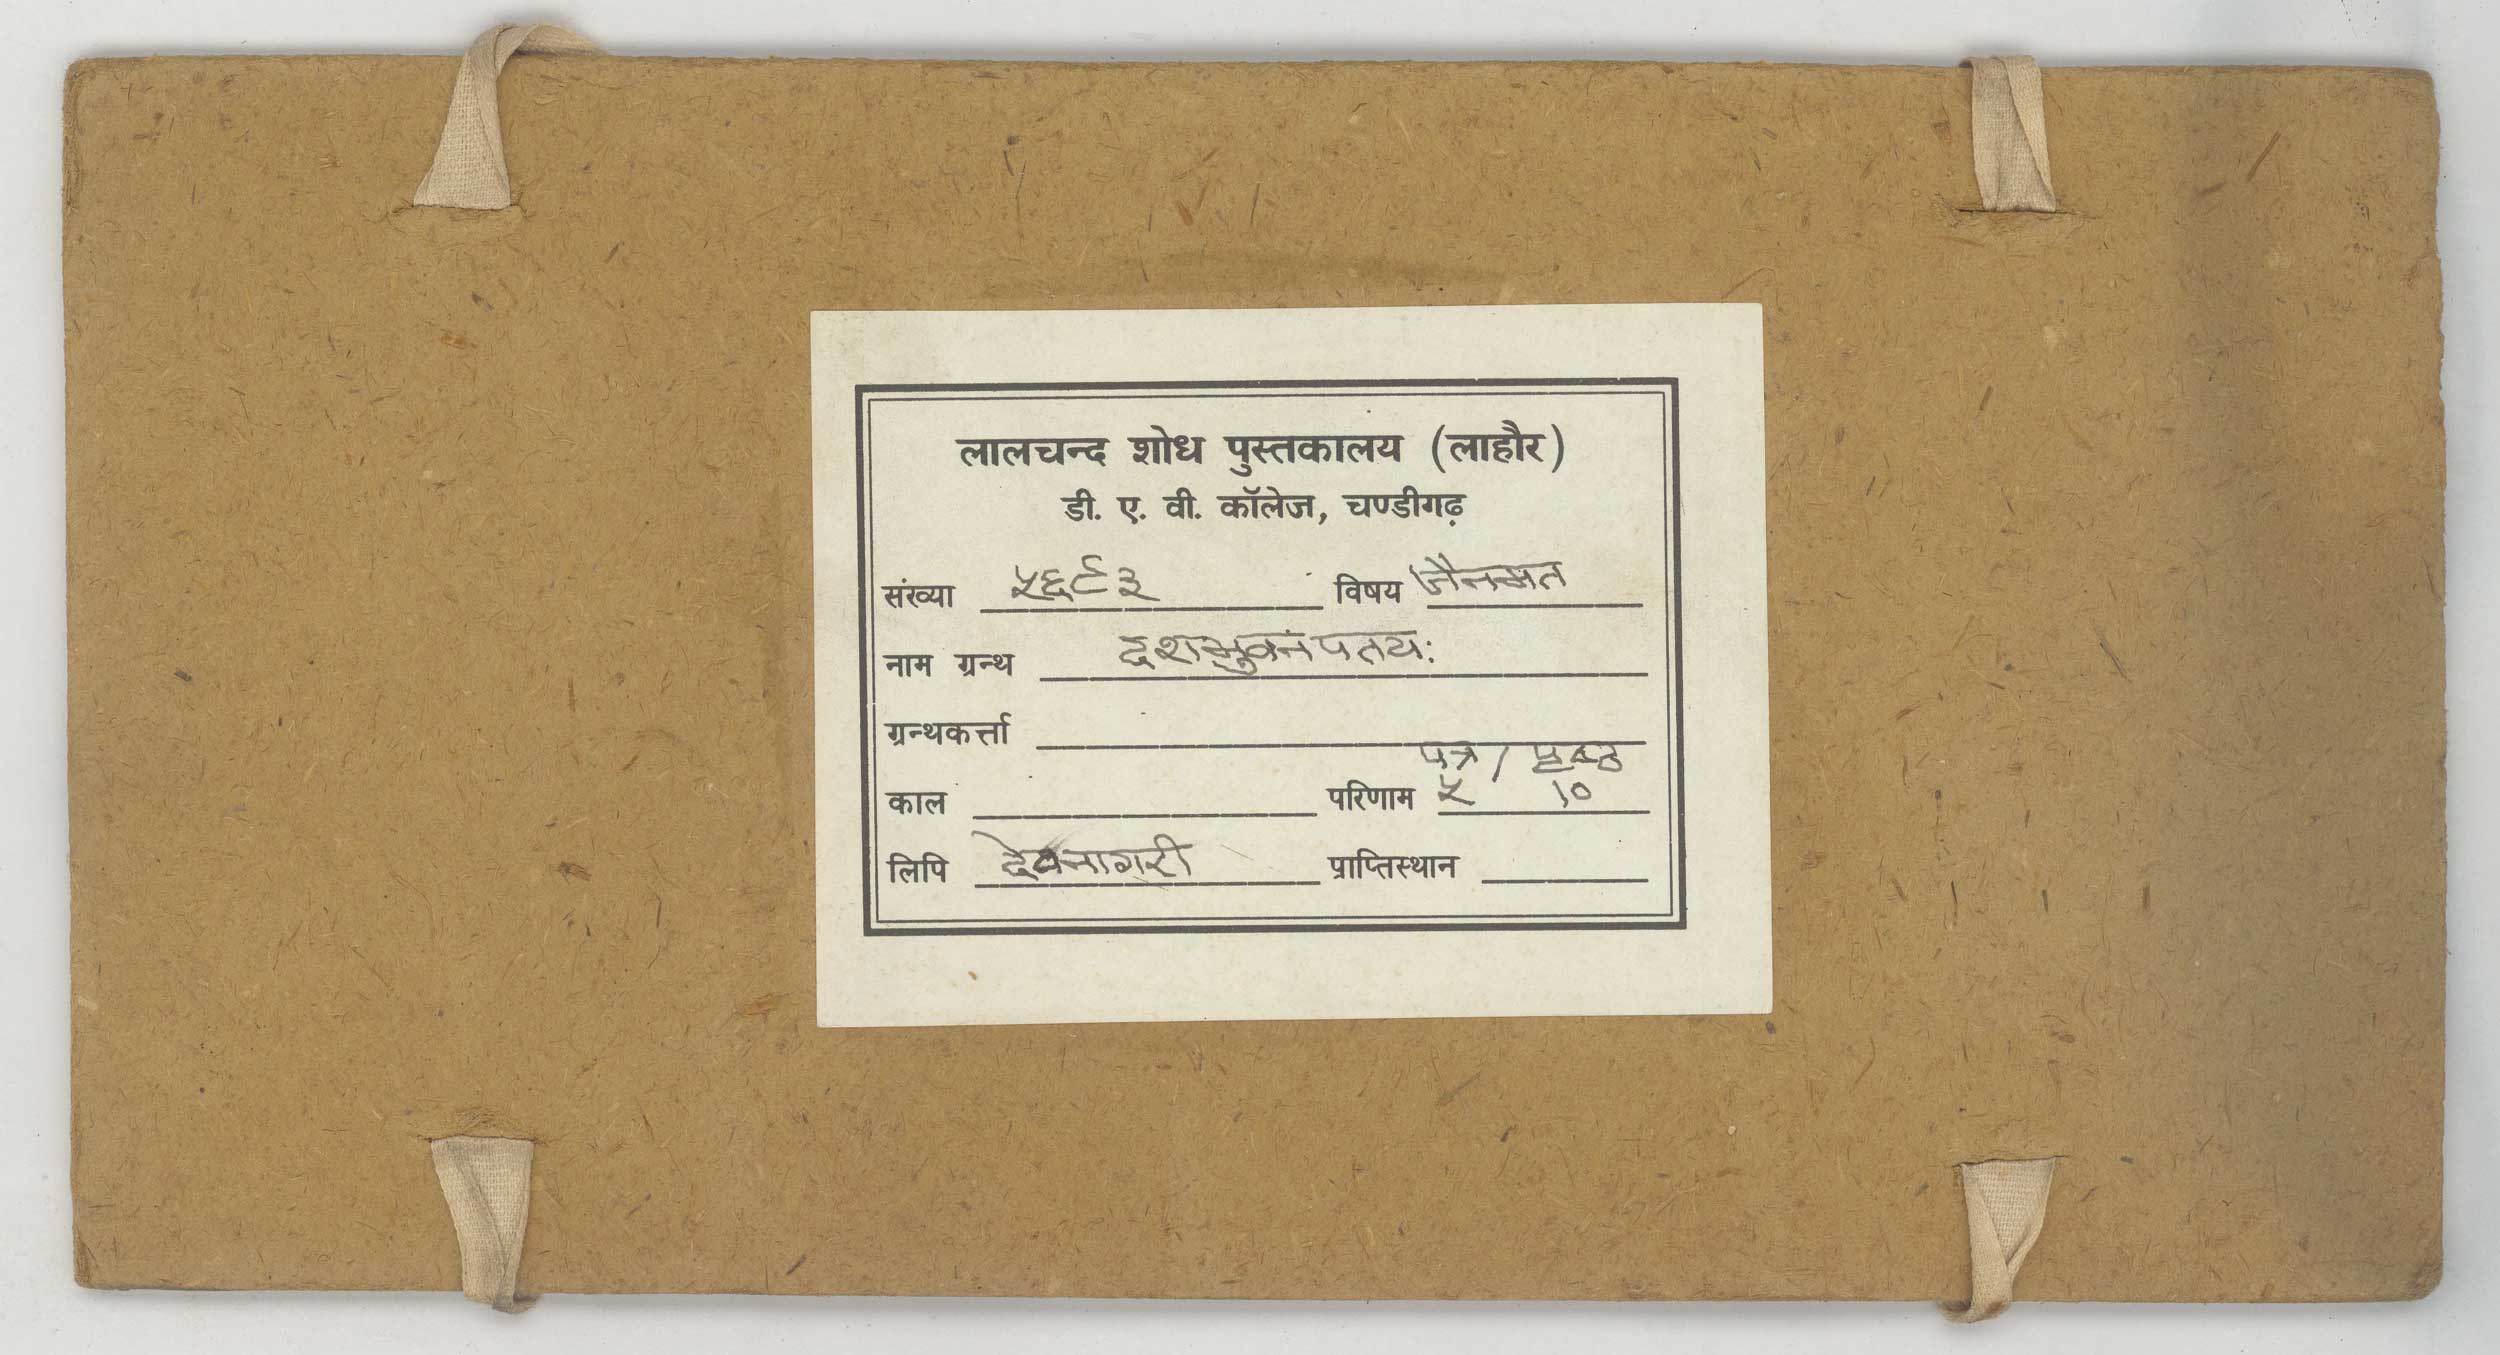 लालचन्द शोध पुस्तकालय (लाहौर)
डी. ए. वी. कॉलेज, चण्डीगढ़
संख्या ५६९३ विषय जैनमत
नाम ग्रन्थ दशभुवनपतयः
ग्रन्थकर्त्ता
पत्र / पृष्ठ
काल परिणाम ५ १०
लिपि देवनागरी प्राप्तिस्थान